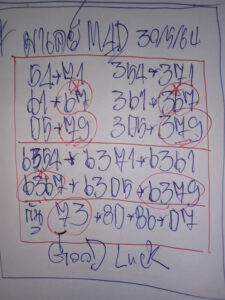 มาเลย์ M4D 30/5/64
51*71 354*371
61*67 361*367
05*79 305*379
6354*6371*6361
6367*6305*6379
73*80*86*07
Good Luck